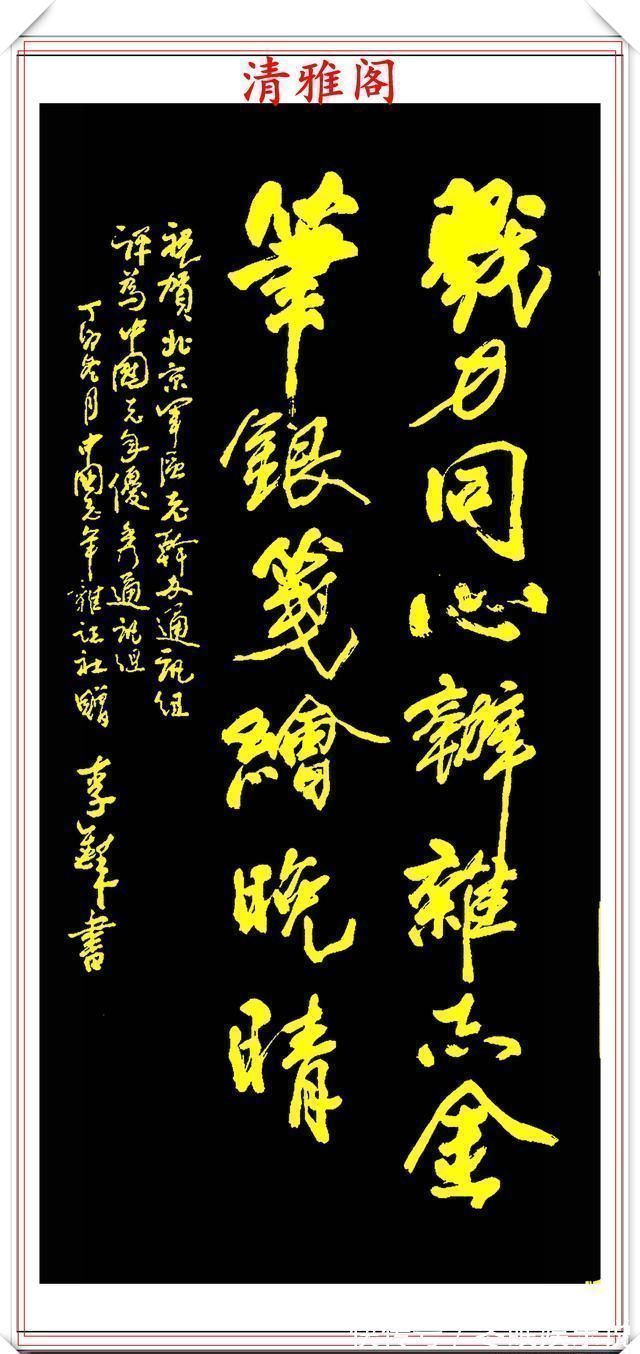 清雅阁
戮力同心辦雜志金
筆銀箋繪晚晴
祝賀北京軍區老幹部通訊組
評為中國老年優秀通訊組
丁卯冬月中國老年雜誌社贈 李 書